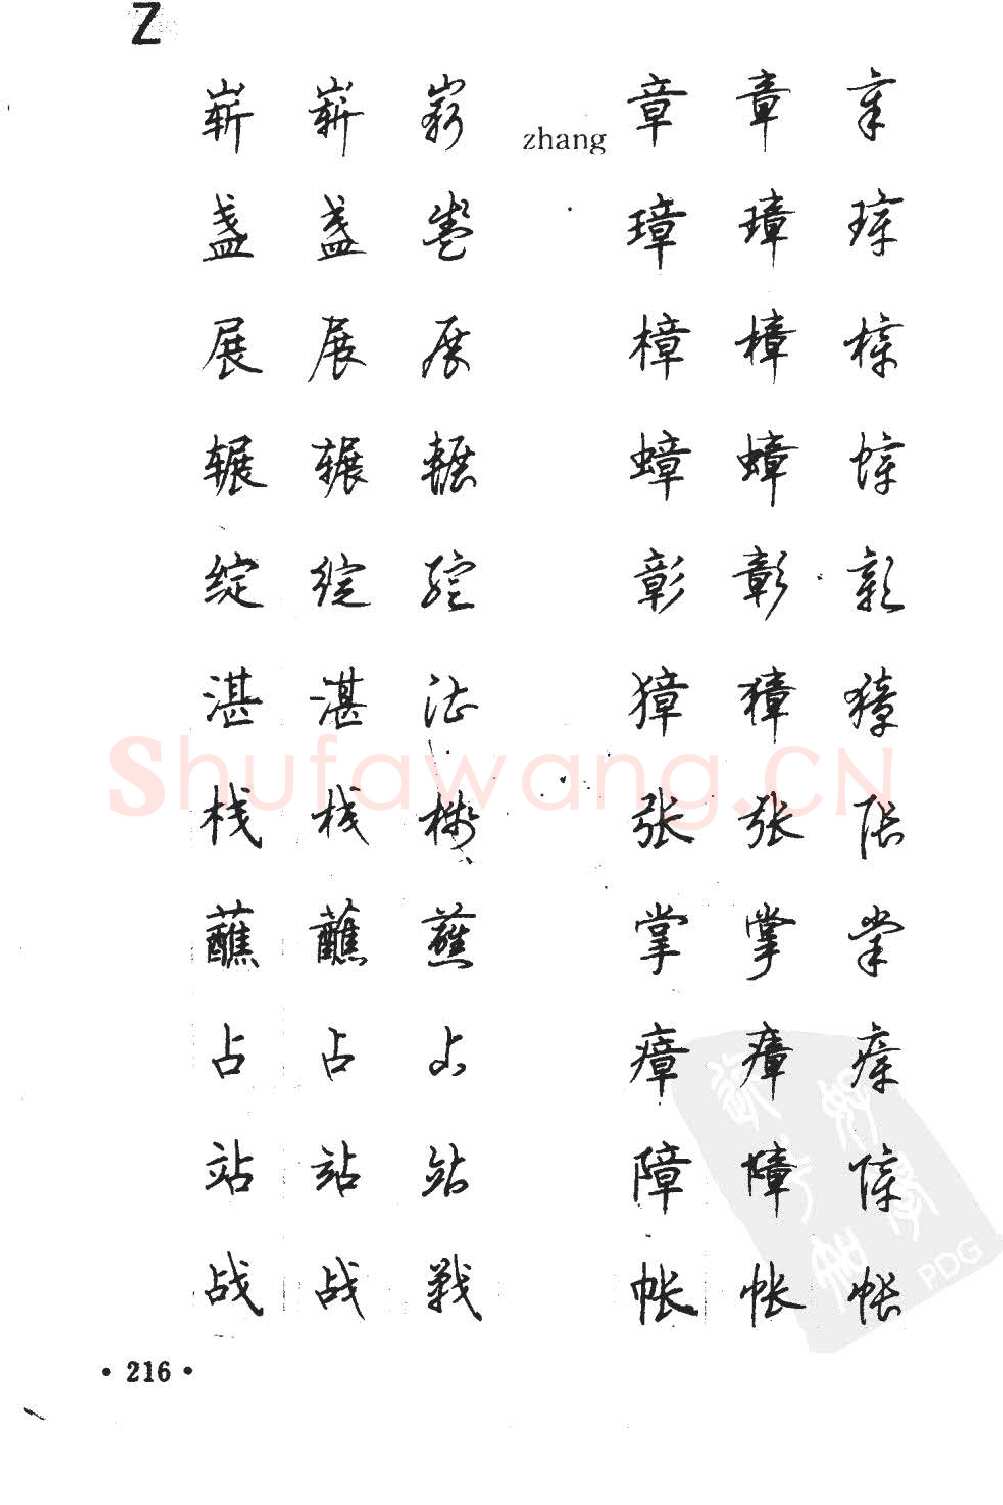 Z
崭 崭 崭 zhang 章 章 章
盏 盏 盏 璋 璋 璋
展 展 展 樟 樟 樟
辗 辗 辗 蟑 蟑 蟑
绽 绽 绽 彰 彰 彰
湛 湛 湛 獐 獐 獐
Shufawang.CN
栈 栈 栈 张 张 张
蘸 蘸 蘸 掌 掌 掌
占 占 占 瘴 瘴 瘴
站 站 站 障 障 障
战 战 战 帐 帐 帐
PDG
• 216 •